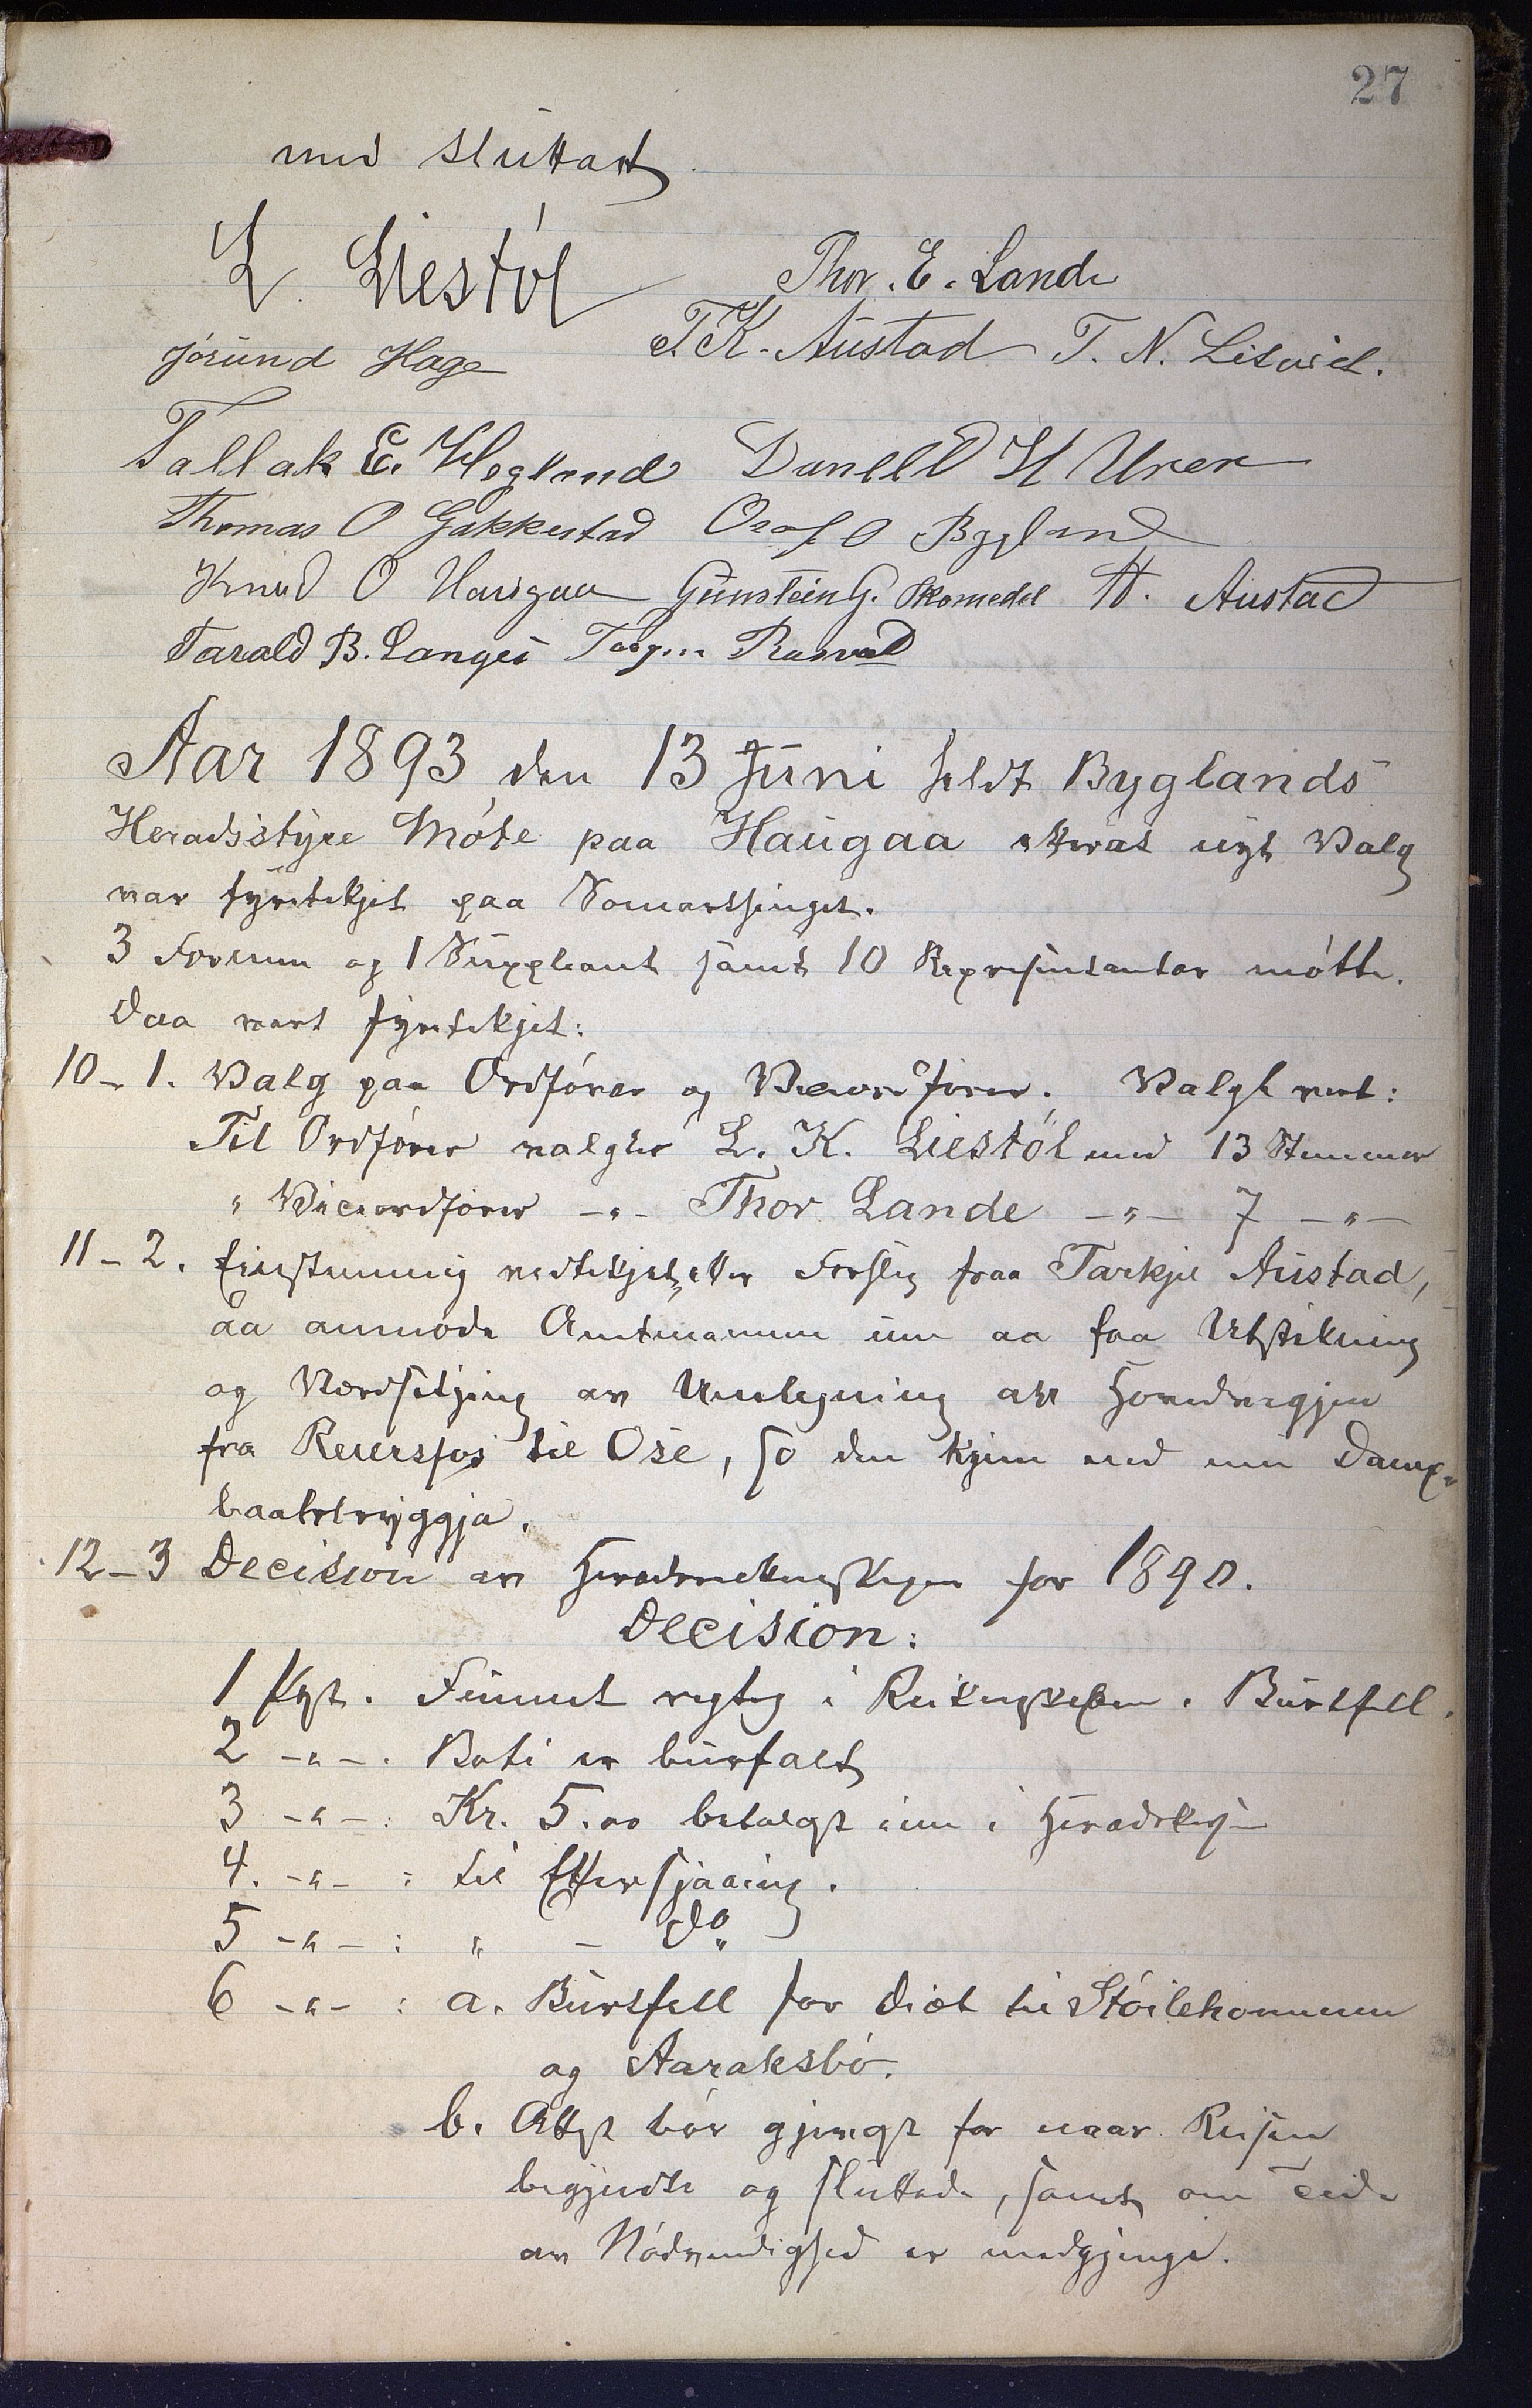 27
med sluttat
L. Liestøl Thor. E. Lande
Jørund Hage T.K. Austad T. N. Litveit.
Tallak E. Hegland Danell H Uren
Thomas O Gakkestad Olaf O Bygland
Knud O Haugaa Gunstein G. Skomedal A. Austad
Tarald B. Langei Rusvad
Aar 1893 den 13 Juni heldt Byglands
Heradsstyre Møte paa Haugaa etterat nyt Valg
var fyretekjet paa Somartinget.
3 Formenn og 1 Suppleant samt 10 Representantar møtte.
Daa vart fyretekjet:
10-1. Valg paa Ordførar og Viceordførar. Valgt vart:
Til Ordførar valgtes L. K. Liestøl med 13 Stemmer
" Viceordførar -"- Thor Lande -"- 7 -"-
11-2. Einstemmig vedtekjet, etter Forslag fraa Tarkjel Austad,
aa anmode Amtmannen um aa faa Utstikning
og Værdsetjing av Umlegning av Hovedvegjen
fra Reiersfos til Ose, so den kjem ned um Damp-
baatbryggja.
12-3 Decision av Heradsrekneskapen for 1890.
Decision:
1 Pst. Funnet rigtig i Rekneskapen. Burtfell.
2 -"-. Boti er burtfalt
3 -"-: Kr. 5.00 betalast inn i Heradskassa
4. -"- : til Ettersjaaing.
5 -"- : " - do
6 -"- : a. Burtfell for Diæt til Støilehommen
og Aaraksbø.
b. Attest bør gjevast for naar Reisen
begjyndte og sluttade, samt om Tide
av Nødvendighed er medgjengi.